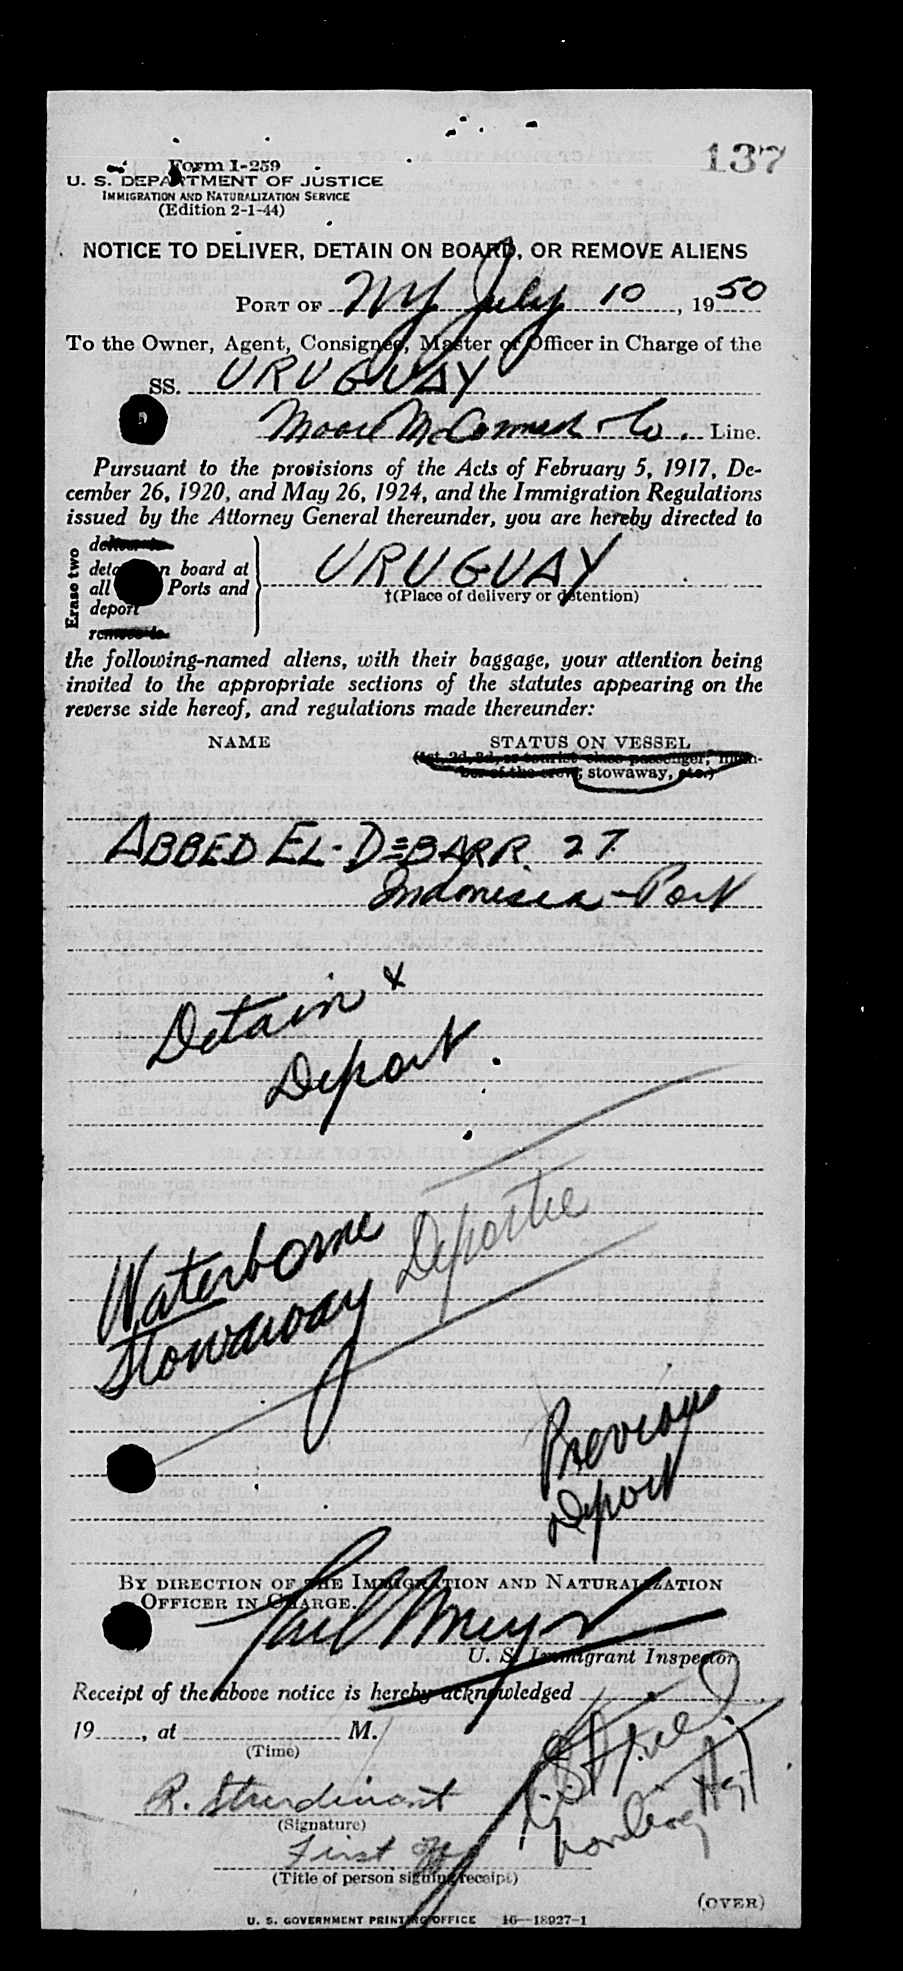 137
Form I-259
U. S. DEPARTMENT OF JUSTICE
IMMIGRATION AND NATURALIZATION SERVICE
(Edition 2-1-44)
NOTICE TO DELIVER, DETAIN ON BOARD, OR REMOVE ALIENS
PORT OF NY July 10, 1950
To the Owner, Agent, Consignee, Master or Officer in Charge of the
SS. URUGUAY
Moore McCormack Co. Line.
Pursuant to the provisions of the Acts of February 5, 1917, De-
cember 26, 1920, and May 26, 1924, and the Immigration Regulations
issued by the Attorney General thereunder, you are hereby directed to
Erase two
deliver to
detain on board at
all Ports and
deport
remove to
URUGUAY
†(Place of delivery or detention)
the following-named aliens, with their baggage, your attention being
invited to the appropriate sections of the statutes appearing on the
reverse side hereof, and regulations made thereunder:
NAME STATUS ON VESSEL
(1st, 2d, 3d, or tourist class passenger, mem-
ber of the crew; stowaway, etc.)
ABBED EL-DEBARR 27
Indonesia - Port
Detain &
Deport.
Waterborne
Stowaway Deportee
Previous
Deport
BY DIRECTION OF THE IMMIGRATION AND NATURALIZATION
OFFICER IN CHARGE.
U. S. Immigrant Inspector.
Receipt of the above notice is hereby acknowledged
19, at M.
(Time)
R. Sturdivant
(Signature)
First
(Title of person signing receipt)
(OVER)
U. S. GOVERNMENT PRINTING OFFICE 16—18927-1